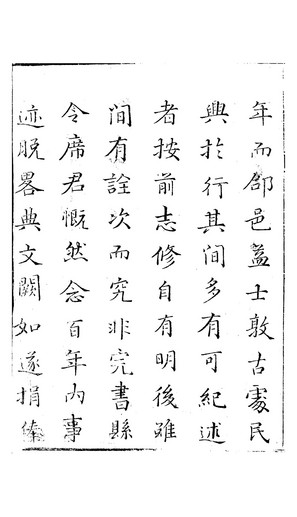 年而郃邑蓋士敦古處民
興於行其間多有可紀述
者按前志修自有明後雖
間有詮次而究非完書縣
令席君慨然念百年内事
迹脱畧典文闕如遂捐俸